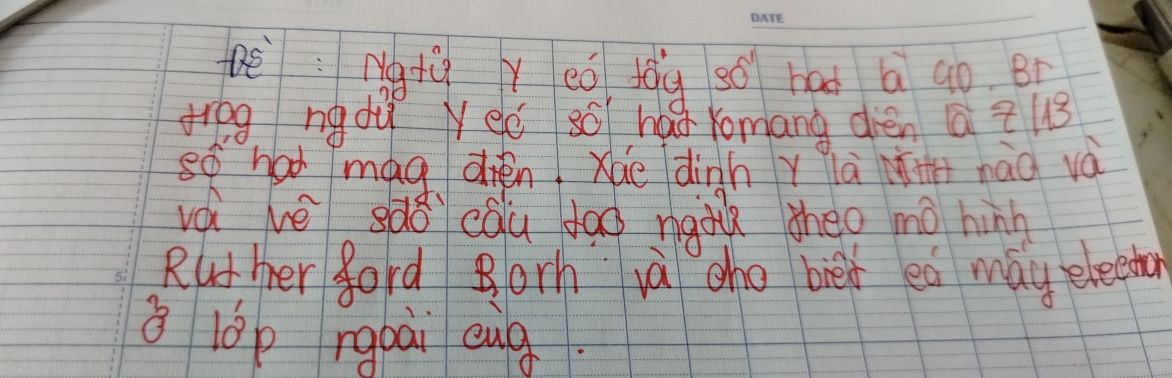 DATE
Đề : Ngtử Y có tổg số hạt là 40. Br
trog ngtử Y có số hạt Komang diện là
số hạt mag điện. Xác định Y là NTHH nào và
và vẽ sdồ cấu tạo ngtử theo mô hình
Rutherford Borh và cho biết có mấy electron
ở lớp ngoài cùg.